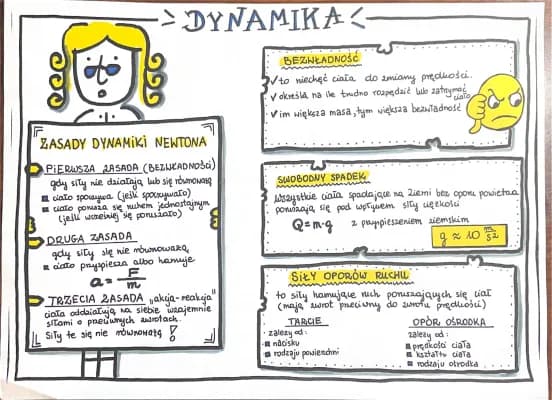 DYNAMIKA
ZASADY DYNAMIKI NEWTONA
PIERWSZA ZASADA (BEZWŁADNOŚCI)
gdy siły nie działają lub się równoważą
ciało spoczywa (jeśli spoczywało)
ciało porusza się ruchem jednostajnym
(jeśli wcześniej się poruszało)
DRUGA ZASADA
gdy siły się nie równoważą
ciało przyspiesza albo hamuje
a = F/m
TRZECIA ZASADA "akcja-reakcja"
ciała oddziałują na siebie wzajemnie
siłami o przeciwnych zwrotach.
Siły te się nie równoważą!
BEZWŁADNOŚĆ
to niechęć ciała do zmiany prędkości.
określa na ile trudno rozpędzić lub zatrzymać
ciało
im większa masa, tym większa bezwładność
SWOBODNY SPADEK
Wszystkie ciała spadające na Ziemi bez oporu powietrza
poruszają się pod wpływem siły ciężkości
Q = m·g
z przyspieszeniem ziemskim
g ≈ 10 m/s²
SIŁY OPORÓW RUCHU
to siły hamujące ruch poruszających się ciał
(mają zwrot przeciwny do zwrotu prędkości)
TARCIE
zależy od:
nacisku
rodzaju powierzchni
OPÓR OŚRODKA
zależy od:
prędkości ciała
kształtu ciała
rodzaju ośrodka